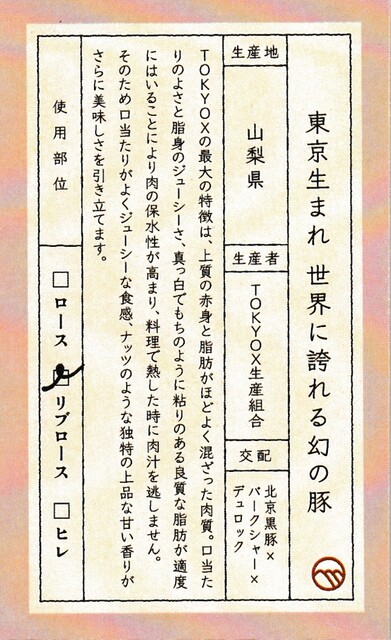 東京生まれ 世界に誇れる幻の豚
生産地
山梨県
生産者
TOKYOX生産組合
交配
北京黒豚×
バークシャー×
デュロック
TOKYOXの最大の特徴は、上質の赤身と脂肪がほどよく混ざった肉質。口当た
りのよさと脂身のジューシーさ、真っ白でもちのように粘りのある良質な脂肪が適度
にはいることにより肉の保水性が高まり、料理で熱した時に肉汁を逃しません。
そのため口当たりがよくジューシーな食感、ナッツのような独特の上品な甘い香りが
さらに美味しさを引き立てます。
使用部位
□ロース □リブロース □ヒレ